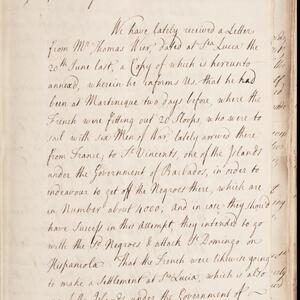 We have lately received a Letter
from Mr. Thomas Wier, dated at Sta Lucia the
20th June last, a Copy of which is hereunto
annexed, wherein he informs Us, that he had
been at Martinique two days before, where the
French were fitting out 20 Sloops, who were to
sail with six Men of War, lately arrived there
from France, to St. Vincents, one of the Islands
under the Government of Barbados, in order to
endeavour to get off the Negroes there, which are
in Number about 4000; and in case they should
have Success in this attempt, they intended to go
with the Sd. Negroes & attack St. Domingo on
Hispaniola. That the French were likewise going
to make a Settlement at Sta Lucia, which is also
of the Islands under the Government of